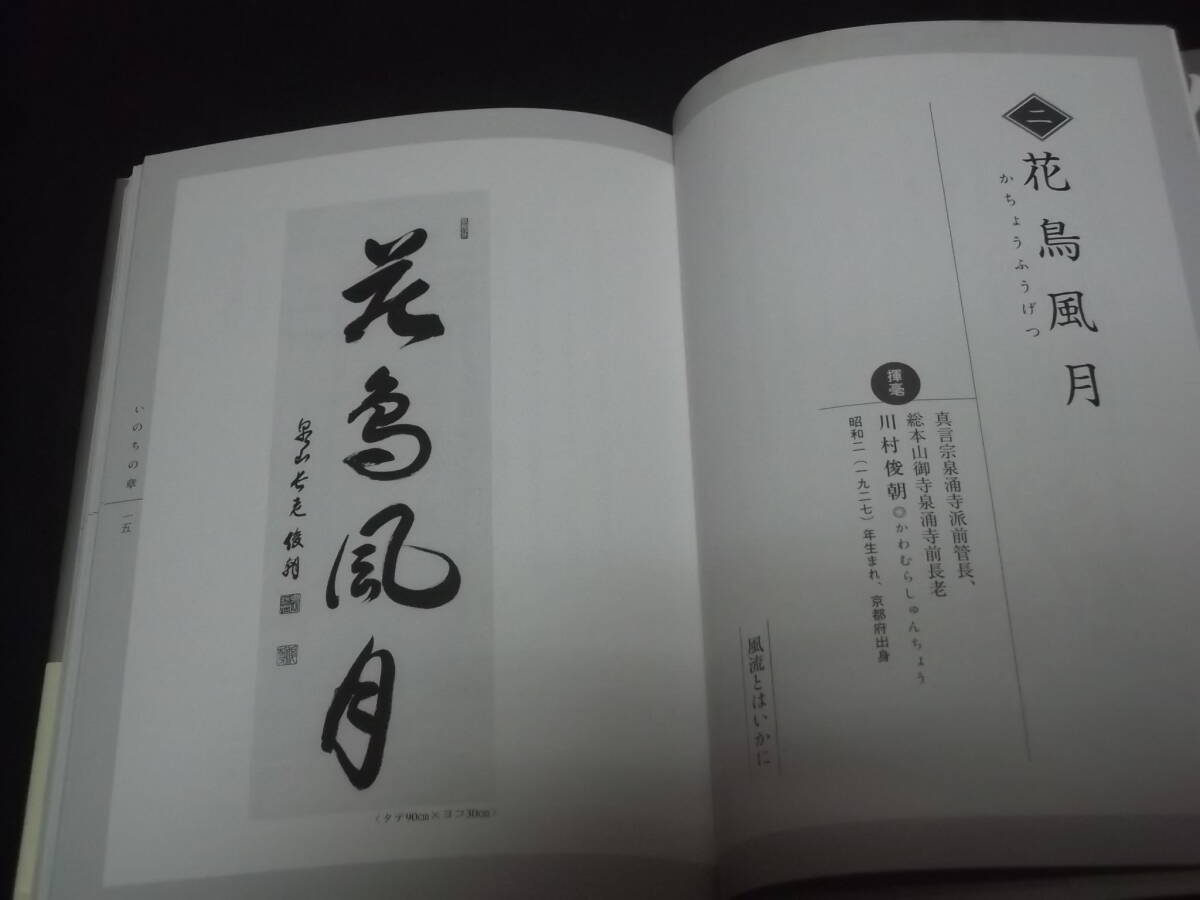 二
花鳥風月
かちょうふうげつ
揮毫
真言宗泉涌寺派前管長、
総本山御寺泉涌寺前長老
川村俊朝◎かわむらしゅんちょう
昭和二(一九二七)年生まれ、京都府出身
風流とはいかに
花鳥風月
泉山長老 俊朝
(タテ90㎝×ヨコ30㎝)
いのちの章
一五